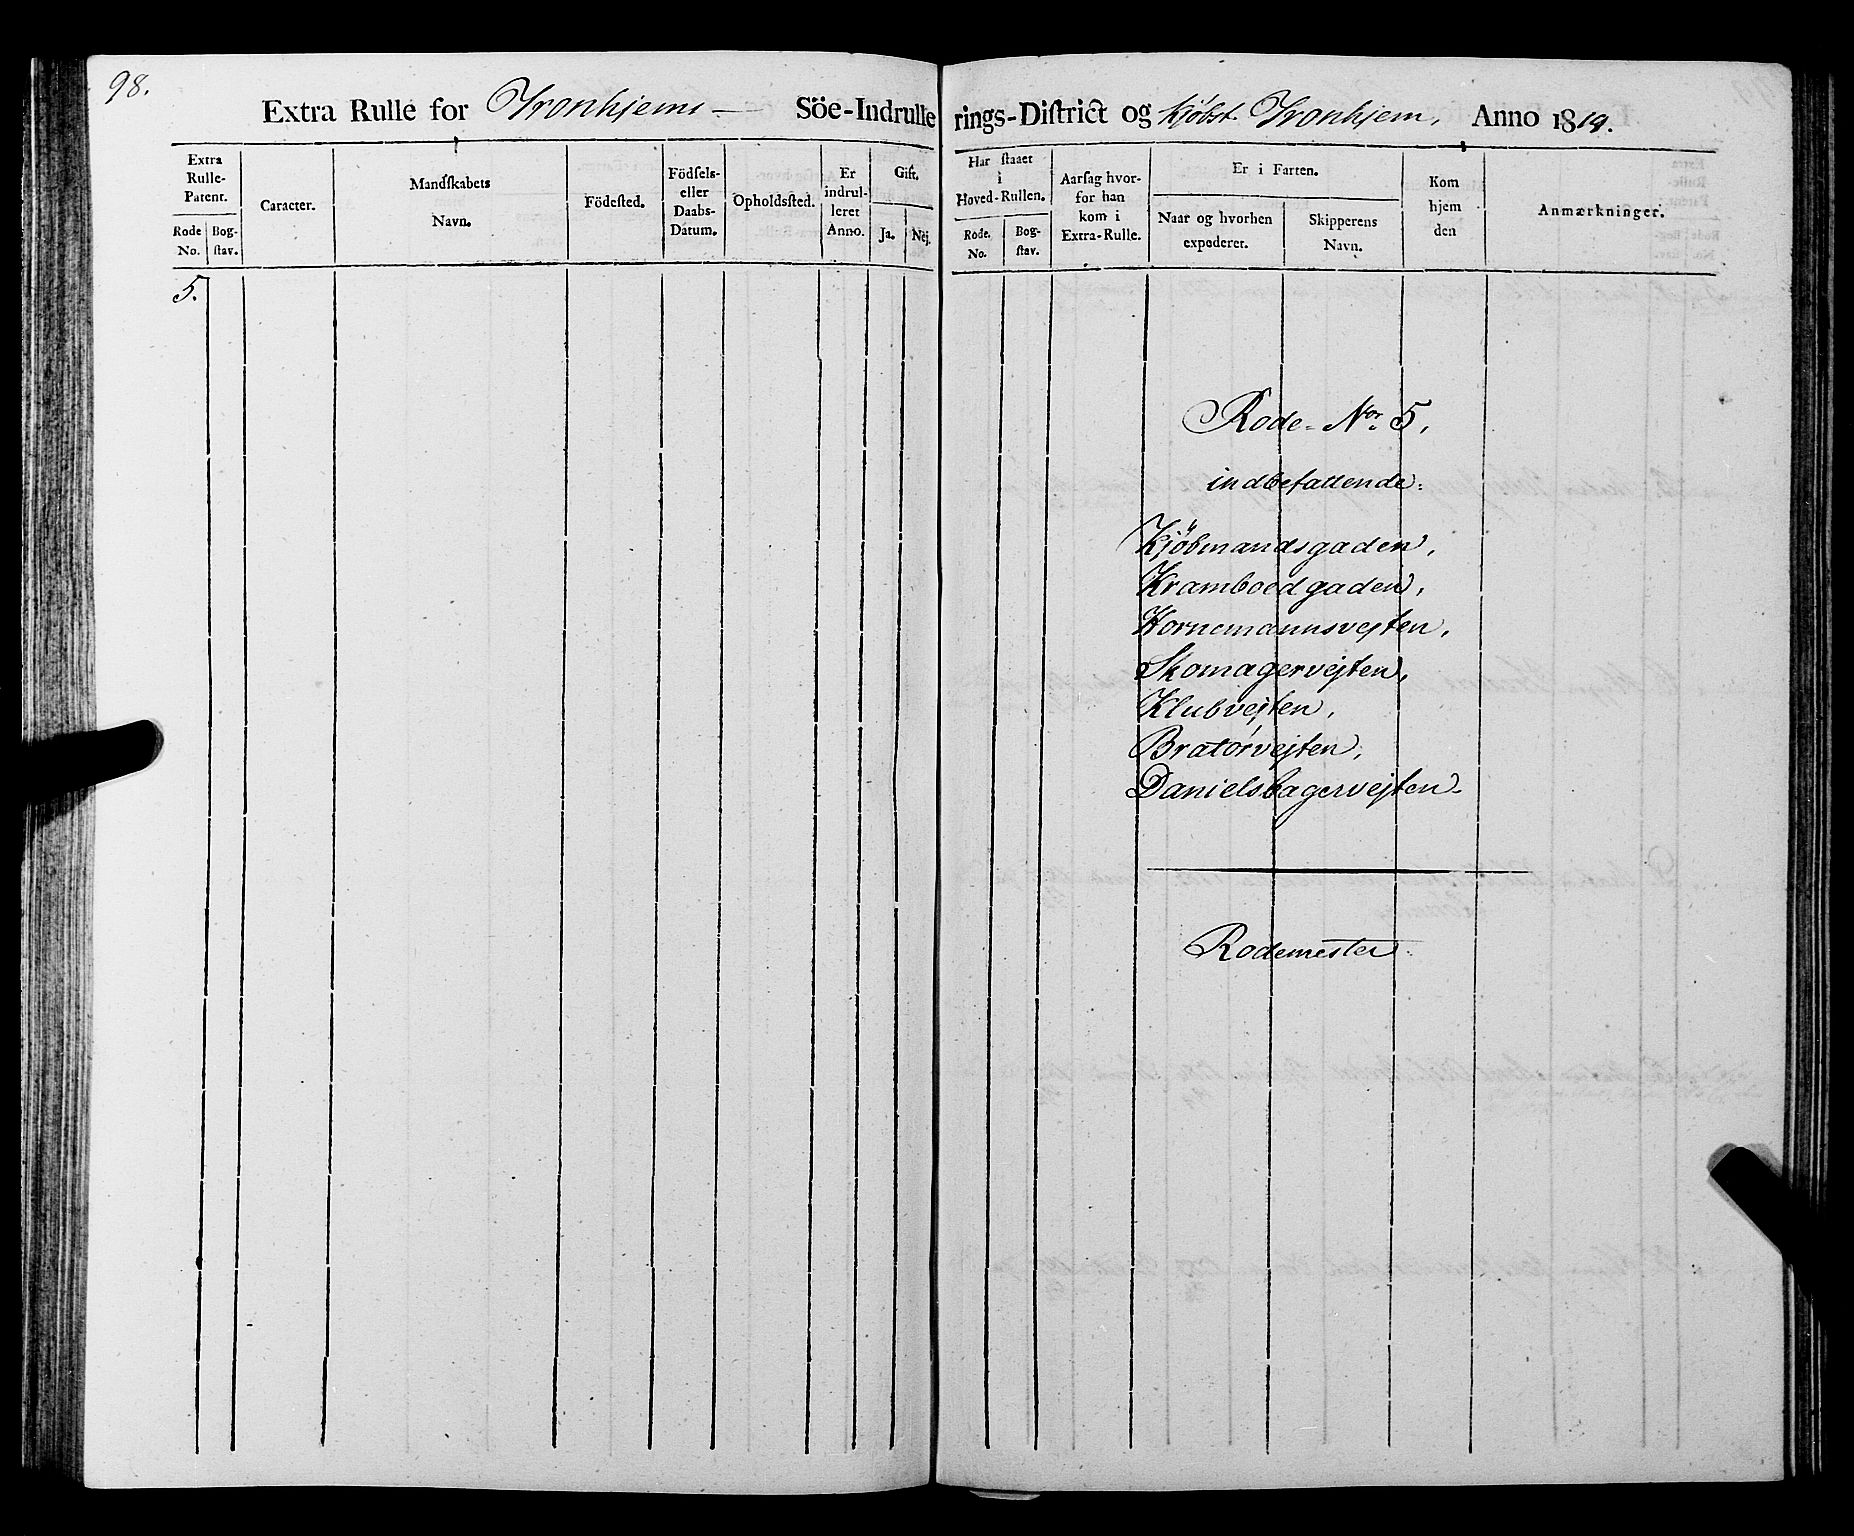 98.
Extra Rulle for Tronhjems Söe-Indrullerings-District og Kjöbst. Tronhjem, Anno 1819.
Extra Rulle-Patent.
Rode No.
Bogstav.
Caracter.
Mandskabets Navn.
Födested.
Födsels- eller Daabs-Datum.
Opholdssted.
Er indrulleret Anno.
Gift.
Ja.
Nej.
Har staaet i Hoved-Rullen.
Rode. No.
Bogstav.
Aarsag hvorfor han kom i Extra-Rulle.
Er i Farten.
Naar og hvorhen expederet.
Skipperens Navn.
Kom hjem den
Anmærkninger.
5.
Rode-Nor. 5,
indbefattende:
Kjöbmandsgaden,
Kramboedgaden,
Hornemannsvejten,
Skomagervejten,
Klubvejten,
Bratörvejten,
Danielsbagervejten.
Rodemester